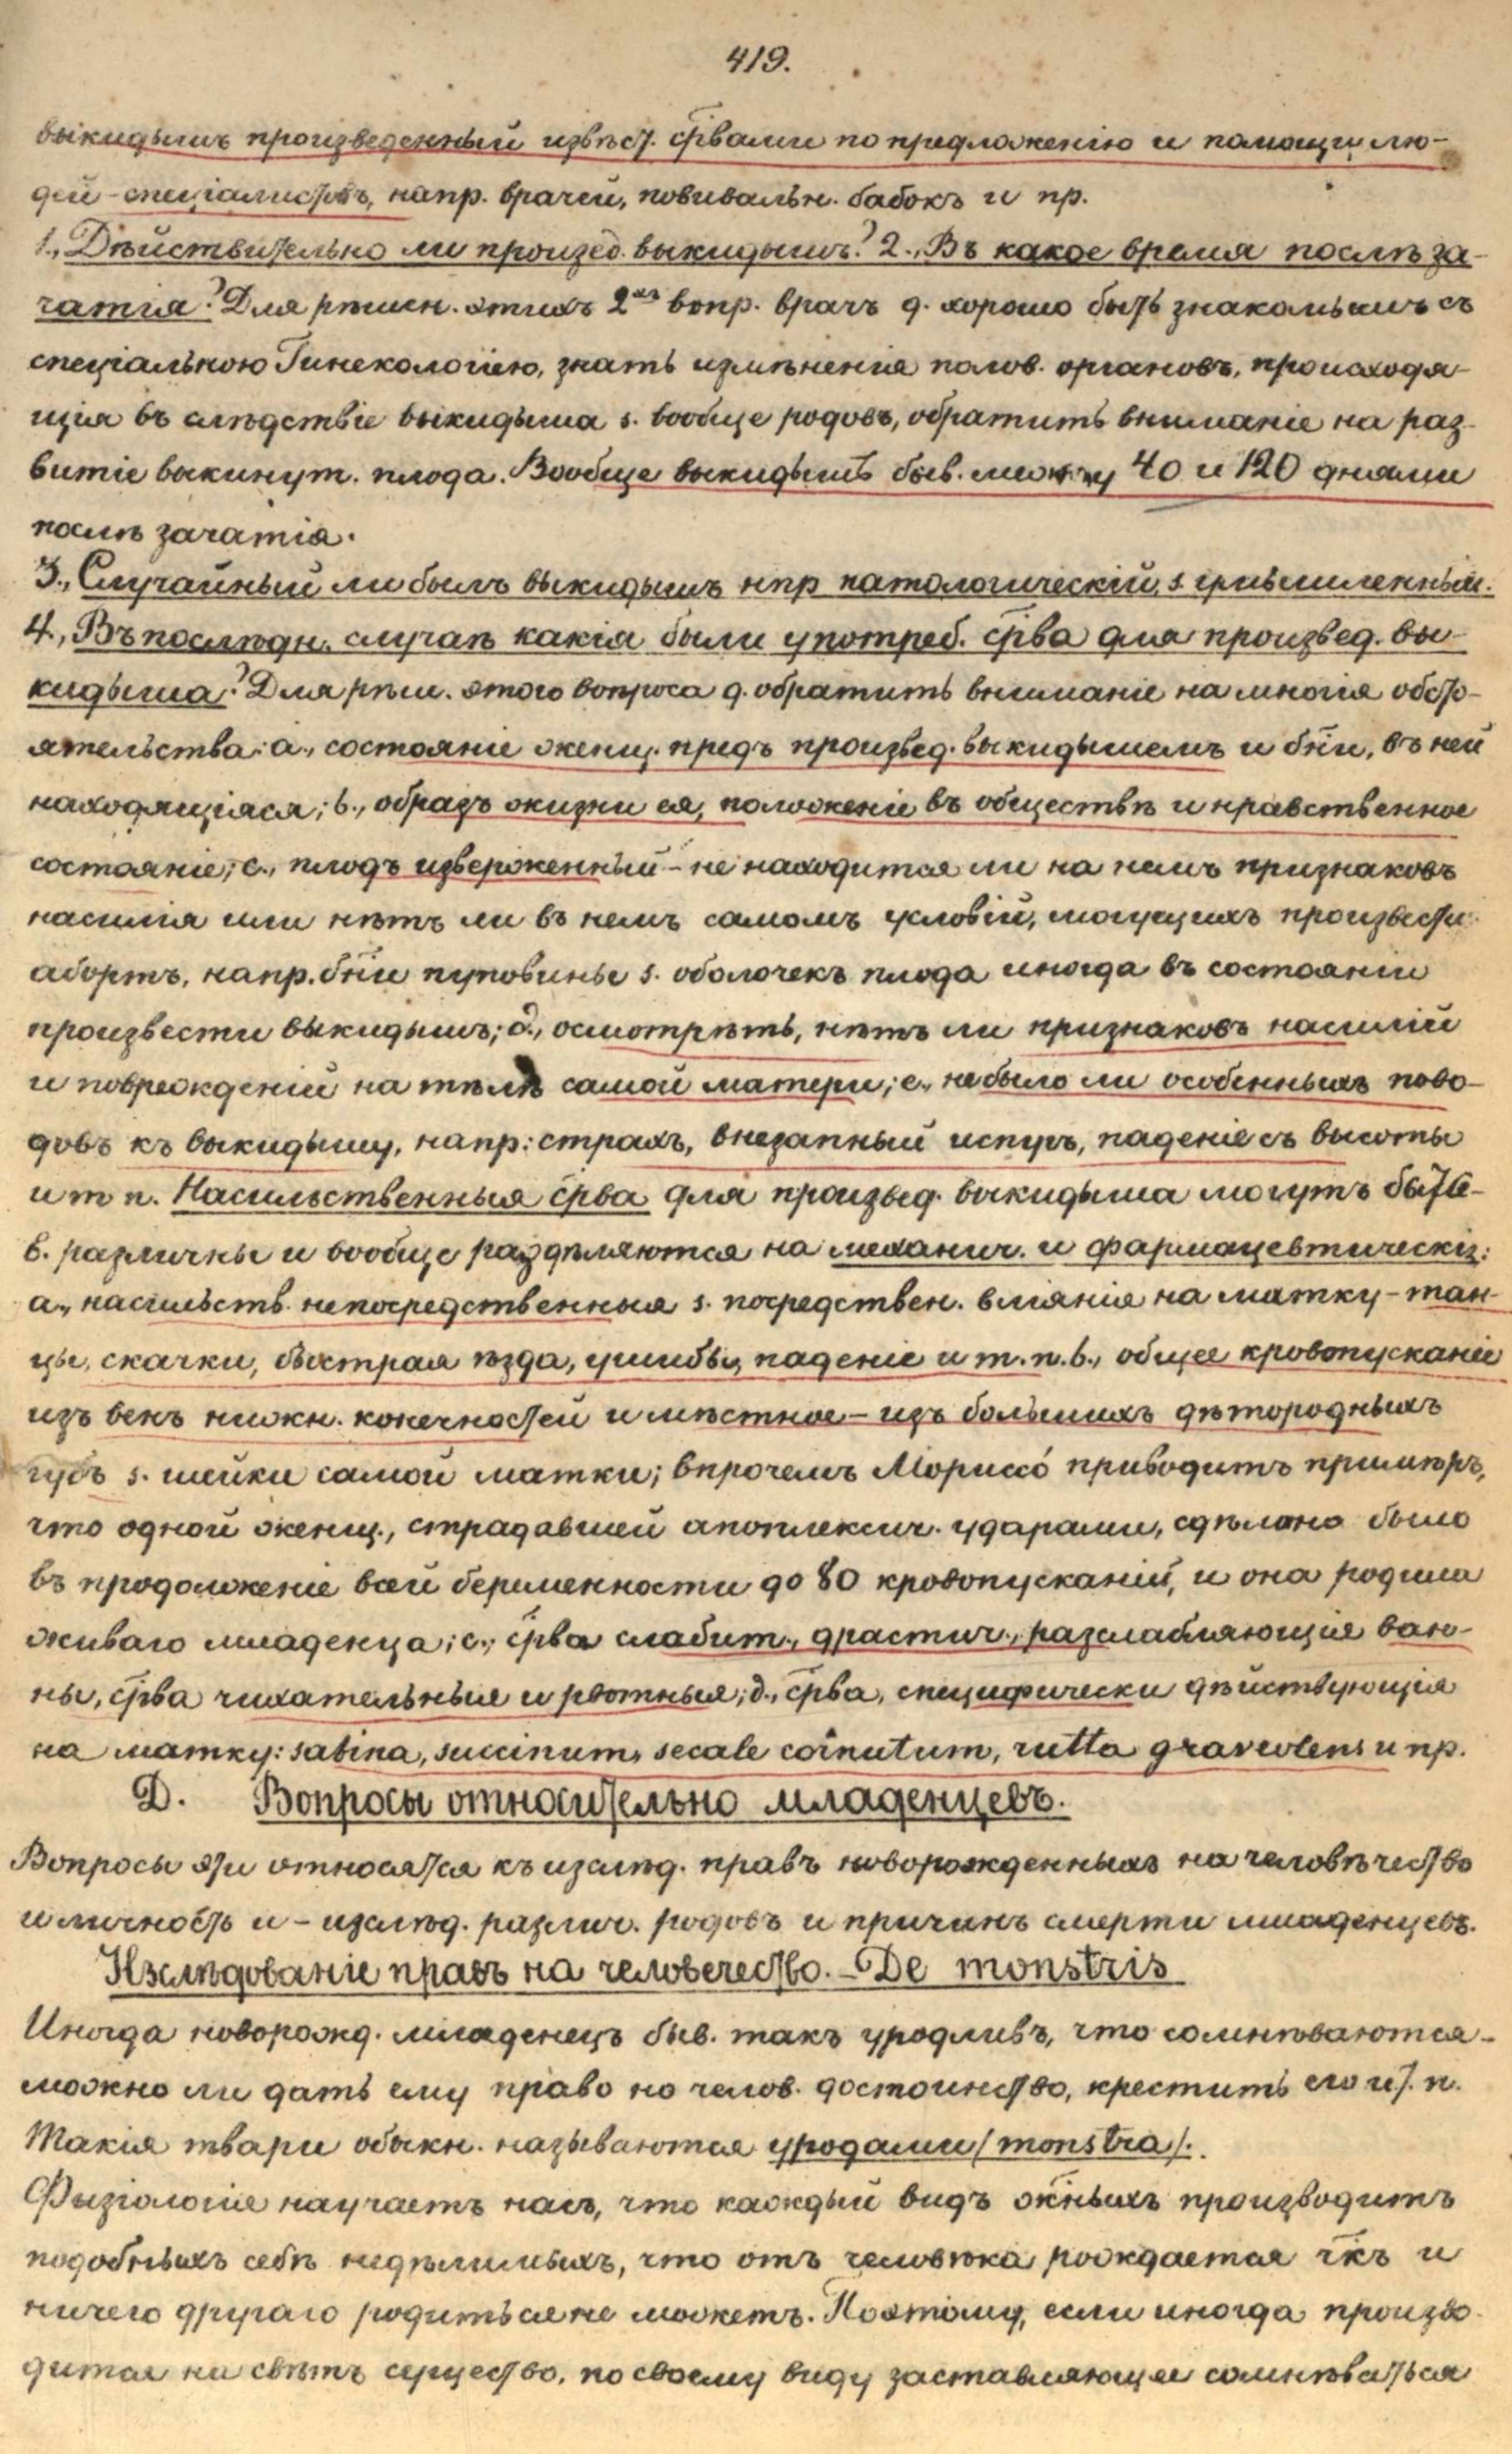 419.
выкидышъ произведенный извѣст. ср̅вами по предложенію и помощи лю-
дей-спеціалистовъ, напр. врачей, повивальн. бабокъ и пр.
1., Дѣйствительно ли произвед. выкидышъ? 2., Въ какое время послѣ за-
чатія? Для рѣшен. этихъ 2хъ вопр. врачъ д. хорошо быть знакомымъ съ
спеціальною Гинекологіею, знать измѣненія полов. органовъ, происходя-
щія въ слѣдствіе выкидыша s. вообще родовъ, обратить вниманіе на раз-
витіе выкинут. плода. Вообще выкидышъ быв. между 40 и 120 днями
послѣ зачатія.
3., Случайный ли былъ выкидышъ нпр патологическій, s. умышленный.
4., Въ послѣдн. случаѣ какія были употреб. ср̅ва для произвед. вы-
кидыша? Для рѣш. этого вопроса д. обратить вниманіе на многія обсто-
ятельства: a., состояніе женщ. предъ произвед. выкидышемъ и бн̅и, въ ней
находящіяся; b., образъ жизни ея, положеніе въ обществѣ и нравственное
состояніе; c., плодъ изверженный - не находится ли на немъ признаковъ
насилія или нѣтъ ли въ немъ самомъ условій, могущихъ произвести
абортъ, напр. бн̅и пуповины s. оболочекъ плода иногда въ состояніи
произвести выкидышъ; d., осмотрѣть, нѣтъ ли признаковъ насилій
и поврежденій на тѣлѣ самой матери; e., не было ли особенныхъ пово-
довъ къ выкидышу, напр: страхъ, внезапный испугъ, паденіе съ высоты
и т п. Насильственныя ср̅ва для произвед. выкидыша могутъ быть
в. различны и вообще раздѣляются на механич. и фармацевтическія:
a., насильств. непосредственныя s. посредствен. вліянія на матку - тан-
цы, скачки, быстрая ѣзда, ушибы, паденіе и т. п. b., общее кровопусканіе
изъ венъ нижн. конечностей и мѣстное - изъ большихъ дѣтородныхъ
губъ s. шейки самой матки; впрочемъ Мориссо́ приводитъ примѣръ,
что одной женщ., страдавшей апоплексич. ударами, сдѣлано было
въ продолженіе всей беременности до 80 кровопусканій, и она родила
живаго младенца; c., ср̅ва слабит., драстич., разслабляющія ван-
ны, ср̅ва чихательныя и рвотныя; d., ср̅ва, специфически дѣйствующія
на матку: sabina, succinum, secale cornutum, rutta graveolens и пр.
D. Вопросы относительно младенцевъ.
Вопросы эти относятся къ изслѣд. правъ новорожденныхъ на человѣчество
и личность и - изслѣд. различ. родовъ и причинъ смерти младенцевъ.
Изслѣдованіе правъ на человечество. - De monstris
Иногда новорожд. младенецъ быв. такъ уродливъ, что сомнѣваются -
можно ли дать ему право на челов. достоинство, крестить его и т. п.
Такія твари обыкн. называются уродами /monstra/.
Физіологія научаетъ насъ, что каждый видъ ж̅ныхъ производитъ
подобныхъ себѣ недѣлимыхъ, что отъ человѣка рождается ч̅къ и
ничего другаго родиться не можетъ. Поэтому, если иногда произво-
дится на свѣтъ существо, по своему виду заставляющее сомнѣваться